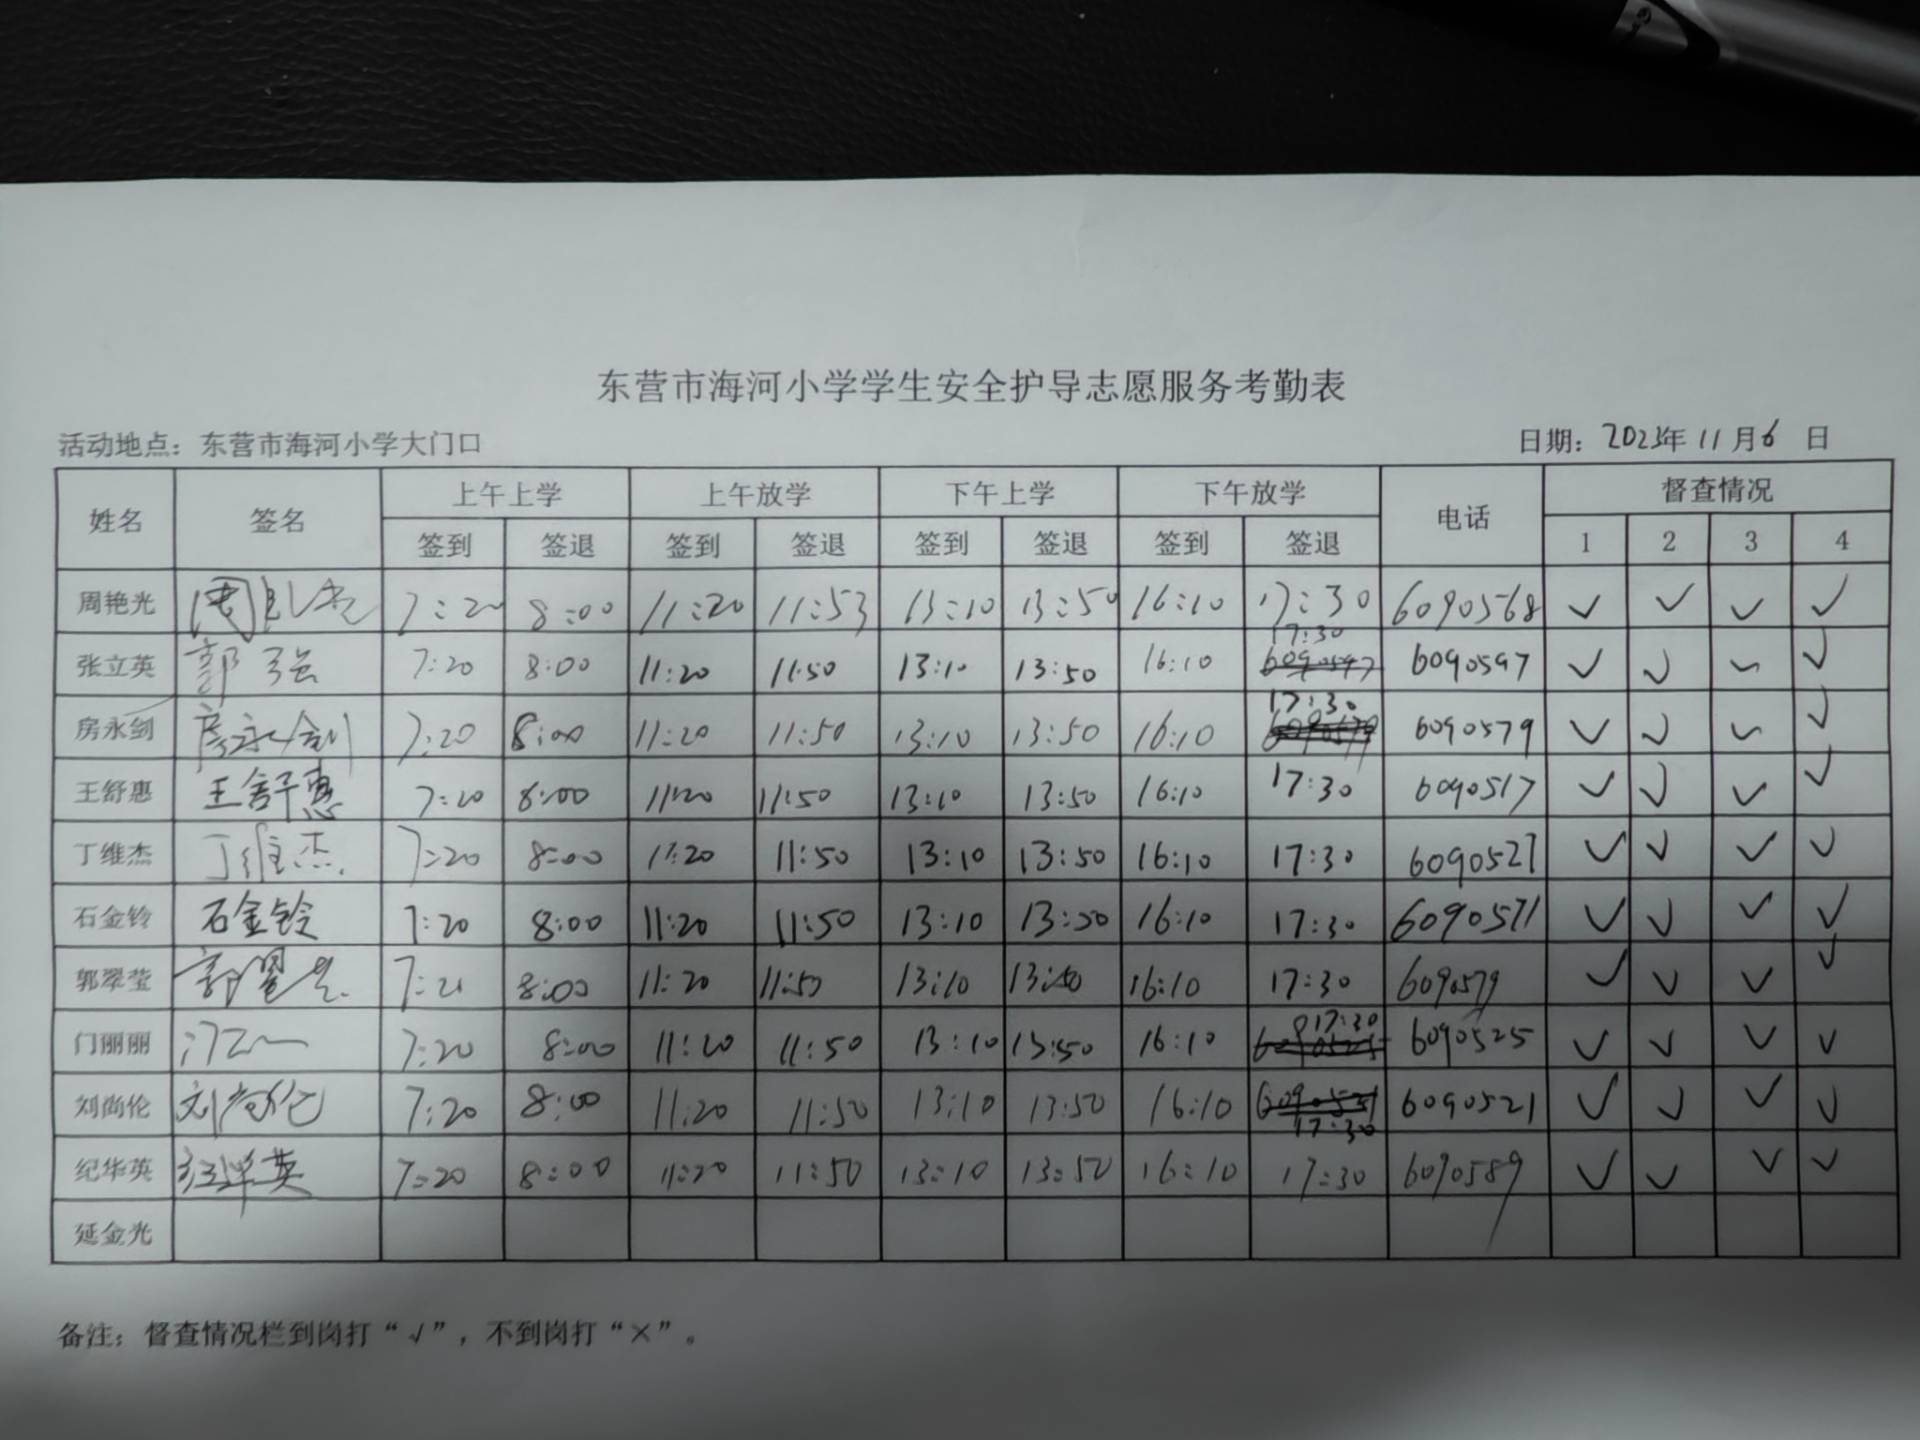 东营市海河小学学生安全护导志愿服务考勤表
活动地点：东营市海河小学大门口 日期：2023年11月6日
姓名 签名 上午上学 上午放学 下午上学 下午放学 电话 督查情况
签到 签退 签到 签退 签到 签退 签到 签退 1 2 3 4
周艳光 周艳光 7:20 8:00 11:20 11:53 13:10 13:50 16:10 17:30 6090568 ✓ ✓ ✓ ✓
张立英 郭强 7:20 8:00 11:20 11:50 13:10 13:50 16:10 17:30 6090597 ✓ ✓ ✓ ✓
房永剑 房永剑 7:20 8:00 11:20 11:50 13:10 13:50 16:10 17:30 6090579 ✓ ✓ ✓ ✓
王舒惠 王舒惠 7:20 8:00 11:20 11:50 13:10 13:50 16:10 17:30 6090517 ✓ ✓ ✓ ✓
丁维杰 丁维杰 7:20 8:00 11:20 11:50 13:10 13:50 16:10 17:30 6090527 ✓ ✓ ✓ ✓
石金铃 石金铃 7:20 8:00 11:20 11:50 13:10 13:50 16:10 17:30 6090571 ✓ ✓ ✓ ✓
郭翠莹 郭翠莹 7:21 8:00 11:20 11:50 13:10 13:50 16:10 17:30 6090579 ✓ ✓ ✓ ✓
门丽丽 7:20 8:00 11:20 11:50 13:10 13:50 16:10 17:30 6090525 ✓ ✓ ✓ ✓
刘尚伦 刘尚伦 7:20 8:00 11:20 11:50 13:10 13:50 16:10 17:30 6090521 ✓ ✓ ✓ ✓
纪华英 纪华英 7:20 8:00 11:20 11:50 13:10 13:50 16:10 17:30 6090589 ✓ ✓ ✓ ✓
延金光
备注：督查情况栏到岗打“√”，不到岗打“×”。